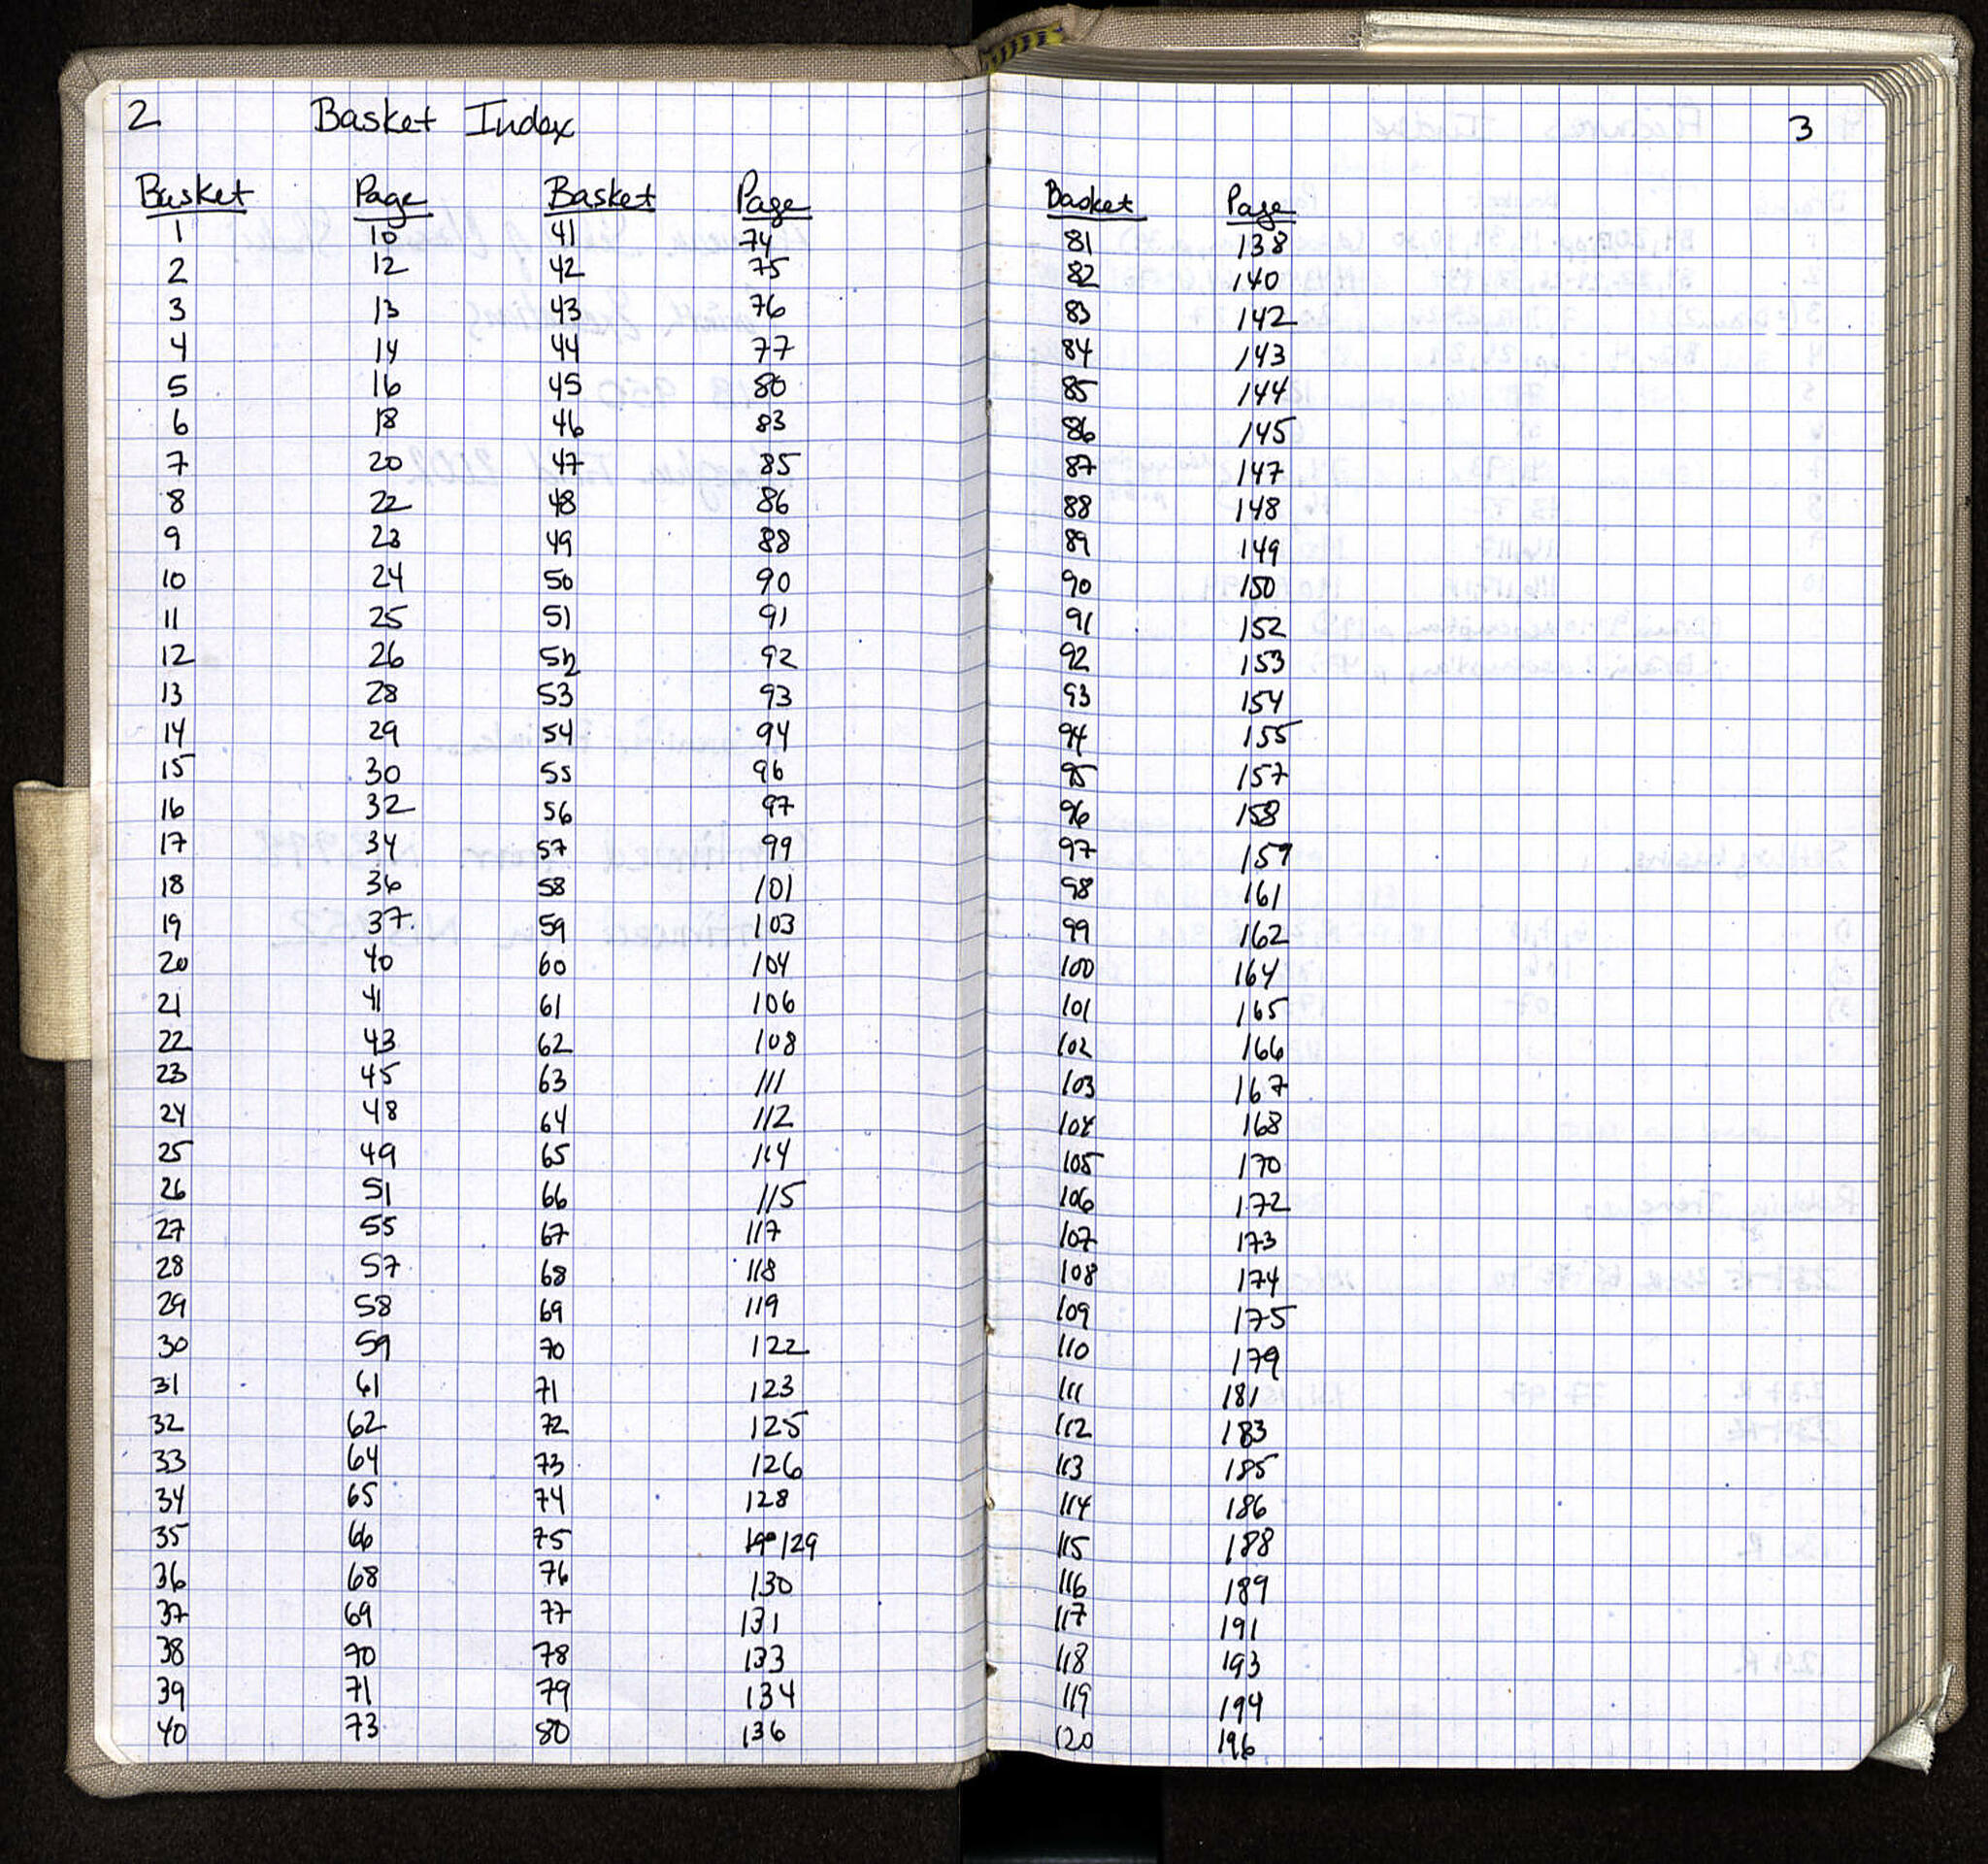 2 Basket Index
Basket Page Basket Page
1 10 41 74
2 12 42 75
3 13 43 76
4 14 44 77
5 16 45 80
6 18 46 83
7 20 47 85
8 22 48 86
9 23 49 88
10 24 50 90
11 25 51 91
12 26 52 92
13 28 53 93
14 29 54 94
15 30 55 96
16 32 56 97
17 34 57 99
18 36 58 101
19 37 59 103
20 40 60 104
21 41 61 106
22 43 62 108
23 45 63 111
24 48 64 112
25 49 65 114
26 51 66 115
27 55 67 117
28 57 68 118
29 58 69 119
30 59 70 122
31 61 71 123
32 62 72 125
33 64 73 126
34 65 74 128
35 66 75 129
36 68 76 130
37 69 77 131
38 70 78 133
39 71 79 134
40 73 80 136
3
Basket Page
81 138
82 140
83 142
84 143
85 144
86 145
87 147
88 148
89 149
90 150
91 152
92 153
93 154
94 155
95 157
96 158
97 159
98 161
99 162
100 164
101 165
102 166
103 167
104 168
105 170
106 172
107 173
108 174
109 175
110 179
111 181
112 183
113 185
114 186
115 188
116 189
117 191
118 193
119 194
120 196